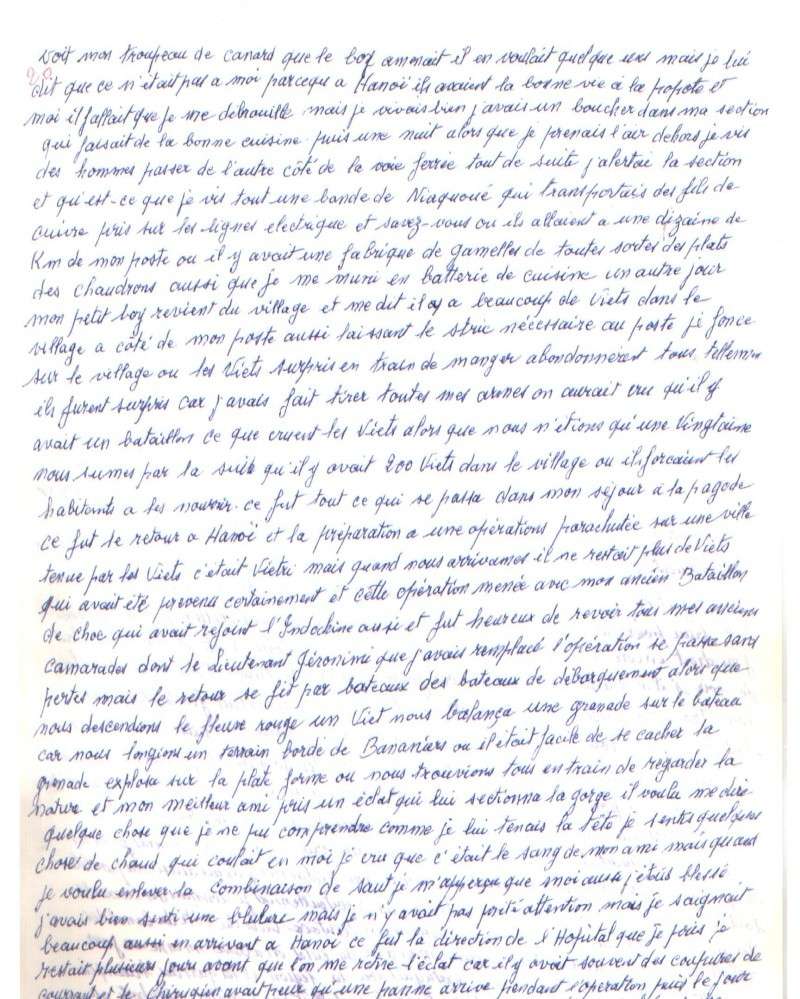 voit mon troupeau de canard que le boy ammenait il en voulait quelque uns mais je lui
dit que ce n'était pas a moi parcequ a Hanoï ils avaient la bonne vie à la popote et
moi il fallait que je me débrouille mais je vivais bien j'avais un boucher dans ma section
qui faisait de la bonne cuisine. puis une nuit alors que je prenais l'air dehors je vis
des hommes passer de l'autre côté de la voie ferrée tout de suite j'alertai la section
et qu'est-ce que je vis tout une bande de Niaquoué qui transportais des fils de
cuivre pris sur les lignes electrique et savez-vous ou ils allaient a une dizaine de
Km de mon poste ou il y avait une fabrique de gamelles de toutes sortes des plats
des chaudrons aussi que je me muni en batterie de cuisine un autre jour
mon petit boy revient du village et me dit il y a beaucoup de Viets dans le
village a côté de mon poste aussi laissant le stric nécessaire au poste je fonce
sur le village ou les Viets surpris en train de manger abandonnèrent tous
ils furent surpris car j'avais fait tirer toutes mes armes on aurait cru qu'il y
avait un bataillon ce que crurent les Viets alors que nous n'étions qu'une Vingtaine
nous sumes par la suite qu'il y avait 200 Viets dans le village ou ils forcaient les
habitants a les nourrir. ce fut tout ce qui se passa dans mon séjour à la pagode
ce fut le retour a Hanoï et la préparation a une opérations parachutée sur une ville
tenue par les Viets c'était Vietri mais quand nous arrivames il ne restait plus de Viets
qui avait été prevenu certainement et cette opération menée avec mon ancien Bataillon
de choc qui avait rejoint l'Indochine aussi et fut heureux de revoir tous mes anciens
camarades dont le Lieutenant Jéronimi que j'avais remplacé l'opération se passa sans
pertes mais le retour se fit par bateaux des bateaux de débarquement alors que
nous descendions le fleuve rouge un Viet nous balança une grenade sur le bateau
car nous longions un terrain bordé de Bananiers ou il était facile de se cacher la
grenade explosa sur la plate forme ou nous trouvions tous en train de regarder la
nature et mon meilleur ami pris un éclat qui lui sectionna la gorge il voulu me dire
quelque chose que je ne pu comprendre comme je lui tenais la tête je sentis quelque
chose de chaud qui coulait en moi je cru que c'était le sang de mon ami mais quand
je voulu enlever la combinaison de saut je m'apperçu que moi aussi j'étais blessé
j'avais bien senti une mais je n'y avait pas prêté attention mais je saignait
beaucoup aussi en arrivant a Hanoï ce fut la direction de l'Hopital que je pris je
restait plusieurs jours avant que l'on me retire l'éclat car il y avoit souvent des coupures de
courrant et le chirugien avait peur qu'une panne arrive pendant l'opération puis le jour